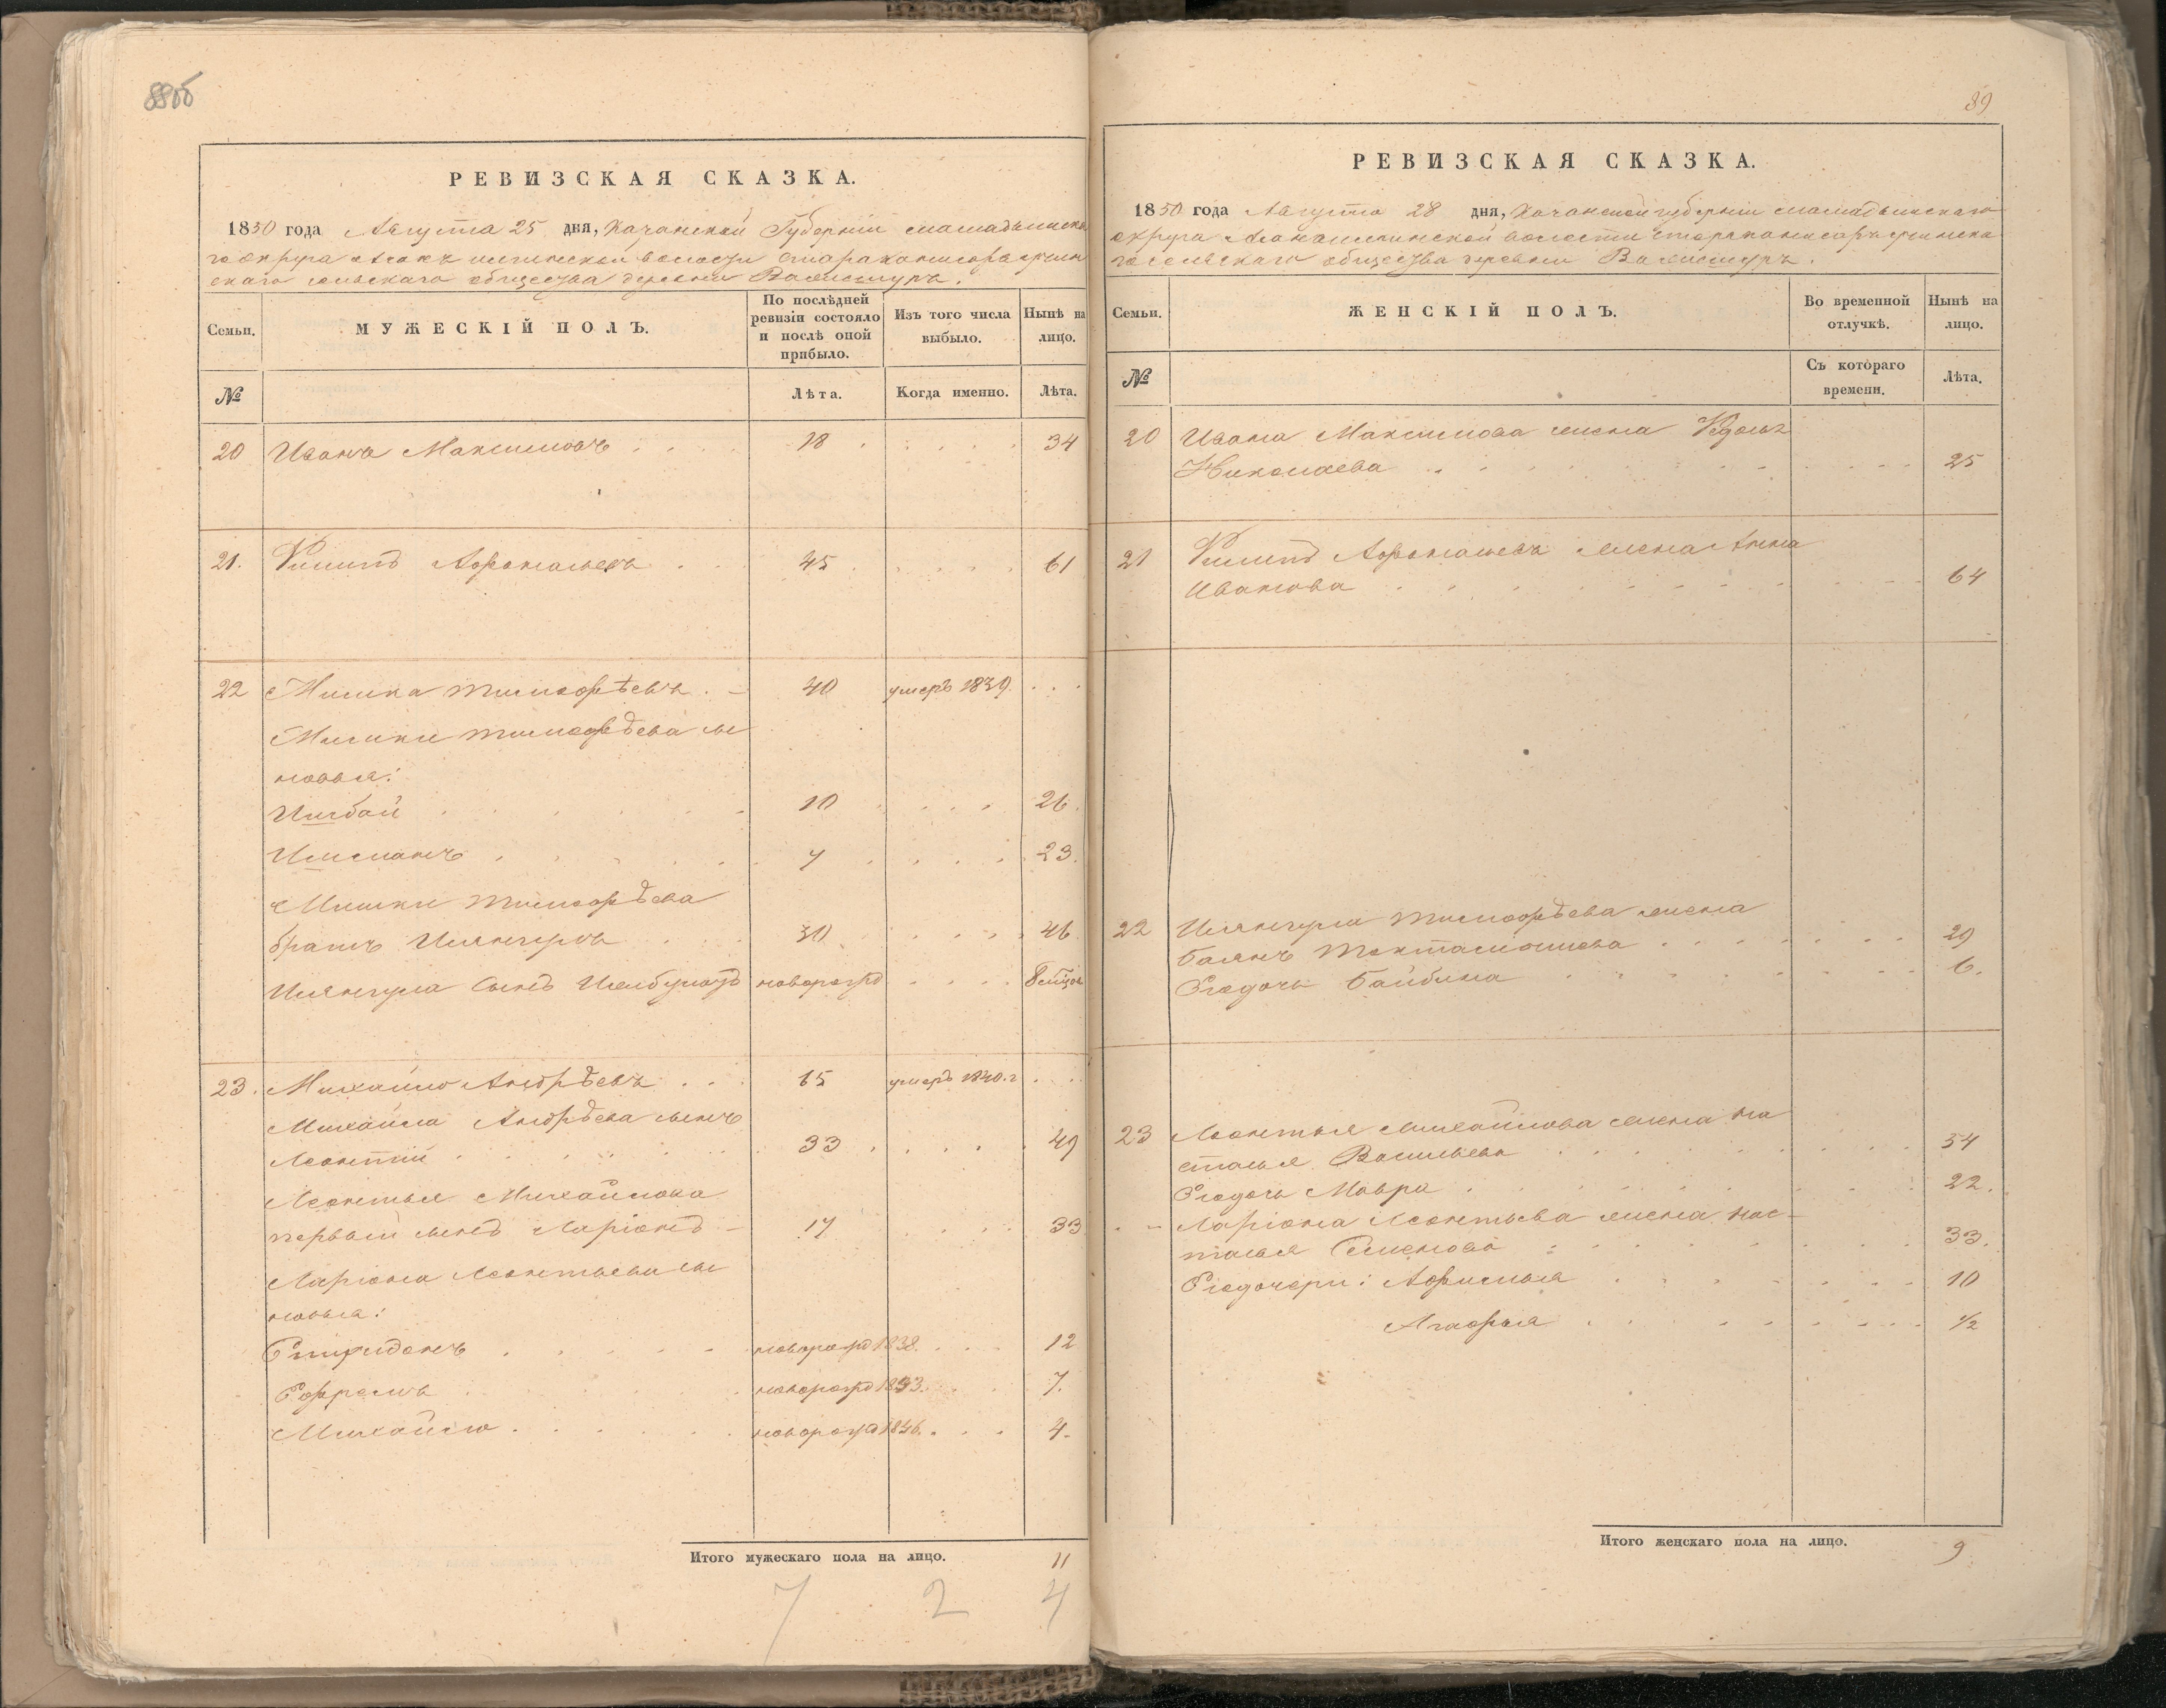 88об
РЕВИЗСКАЯ СКАЗКА.
1850 года Августа 25 дня, Казанской Губерніи мамадышска
го округа
скаго сельскаго общества деревни Валисшуръ.
Семьи.
МУЖЕСКІЙ ПОЛЪ.
По послѣдней ревизіи состояло и послѣ оной прибыло.
Изъ того числа выбыло.
Нынѣ на лицо.
№
Лѣта.
Когда именно.
Лѣта.
20 Иванъ Максимовъ 18 34
21. Филипъ Афонасьевъ 45 61
22 Мишка тимофѣевъ 40 умеръ 1839.
Мишки тимофѣева сы
новья:
Ишбай 10 26.
Ишманъ 7 23.
Мишки тимофѣева
братъ Ишянгулъ 30 46
Ишянгула сынъ Ишбулатъ новорожд
23. Михайло Андрѣевъ 65 умеръ 1840.г
Михайла Андрѣева сынъ
Леонтій 33 49
Леонтья Михайлова
первый сынъ Ларіонъ 17 33
Ларіона Леонтьева сы
новья:
Спиридонъ новорожд 1838. 12
Ефремъ новорожд 1843. 7.
Михайло новорожд 1846. 4.
Итого мужескаго пола на лицо. 11
7 2 4
89
РЕВИЗСКАЯ СКАЗКА.
1850 года Августа 28 дня, Казанской губерніи мамадышскаго
округа волости
го сельскаго общества деревни Валисшуръ.
Семьи.
ЖЕНСКІЙ ПОЛЪ.
Во временной отлучкѣ.
Нынѣ на лицо.
№
Съ котораго времени.
Лѣта.
20 Ивана Максимова жена
Николаева 25
21 Филипа Афонасьева жена Анна
Иванова 64
22 Ишянгула тимофѣева жена
Баянъ Токтамышева 29
Егодочь Байбика 6.
23 Леонтья Михайлова жена На
сталья Васильева 54
Егодочь Мавра 22.
Ларіона Леонтьева жена нас-
талья Семенова 33.
Егодочери: Афимья 10
Агафья 1/2
Итого женскаго пола на лицо. 9